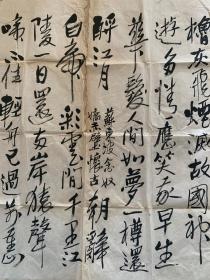 檣灰飛煙滅故國神
遊多情應笑我早生
華髮人間如夢一樽還
酹江月
蘇東坡念奴
嬌赤壁懷古
朝辭
白帝彩雲間千里江
陵一日還兩岸猿聲
啼不住輕舟已過萬重